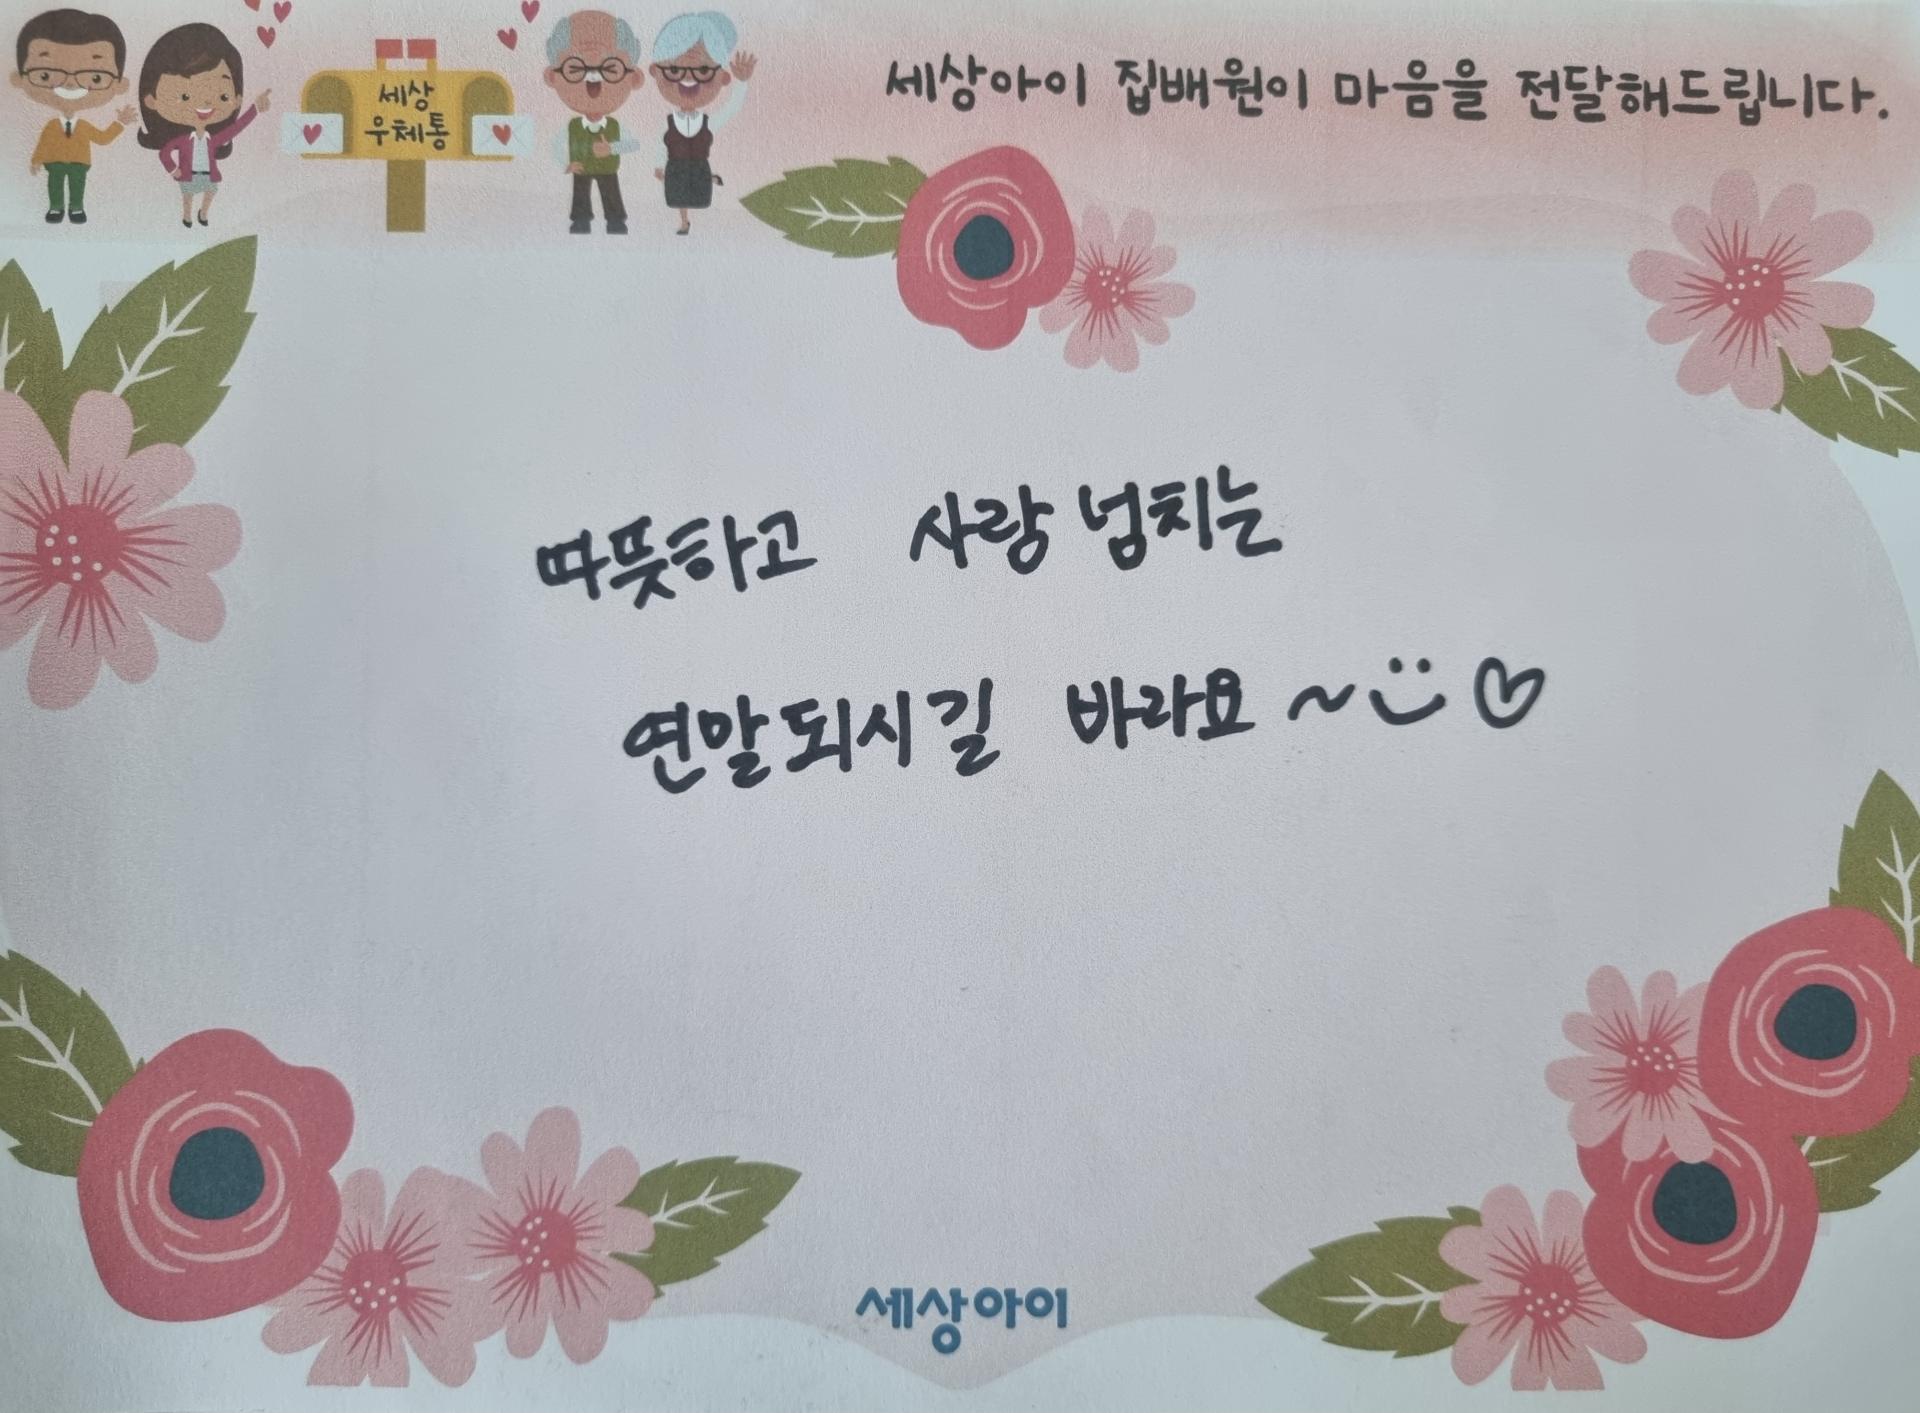 세상아이 집배원이 마음을 전달해드립니다.
세상
우체통
따뜻하고 사랑 넘치는
연말 되시길 바라요~
세상아이